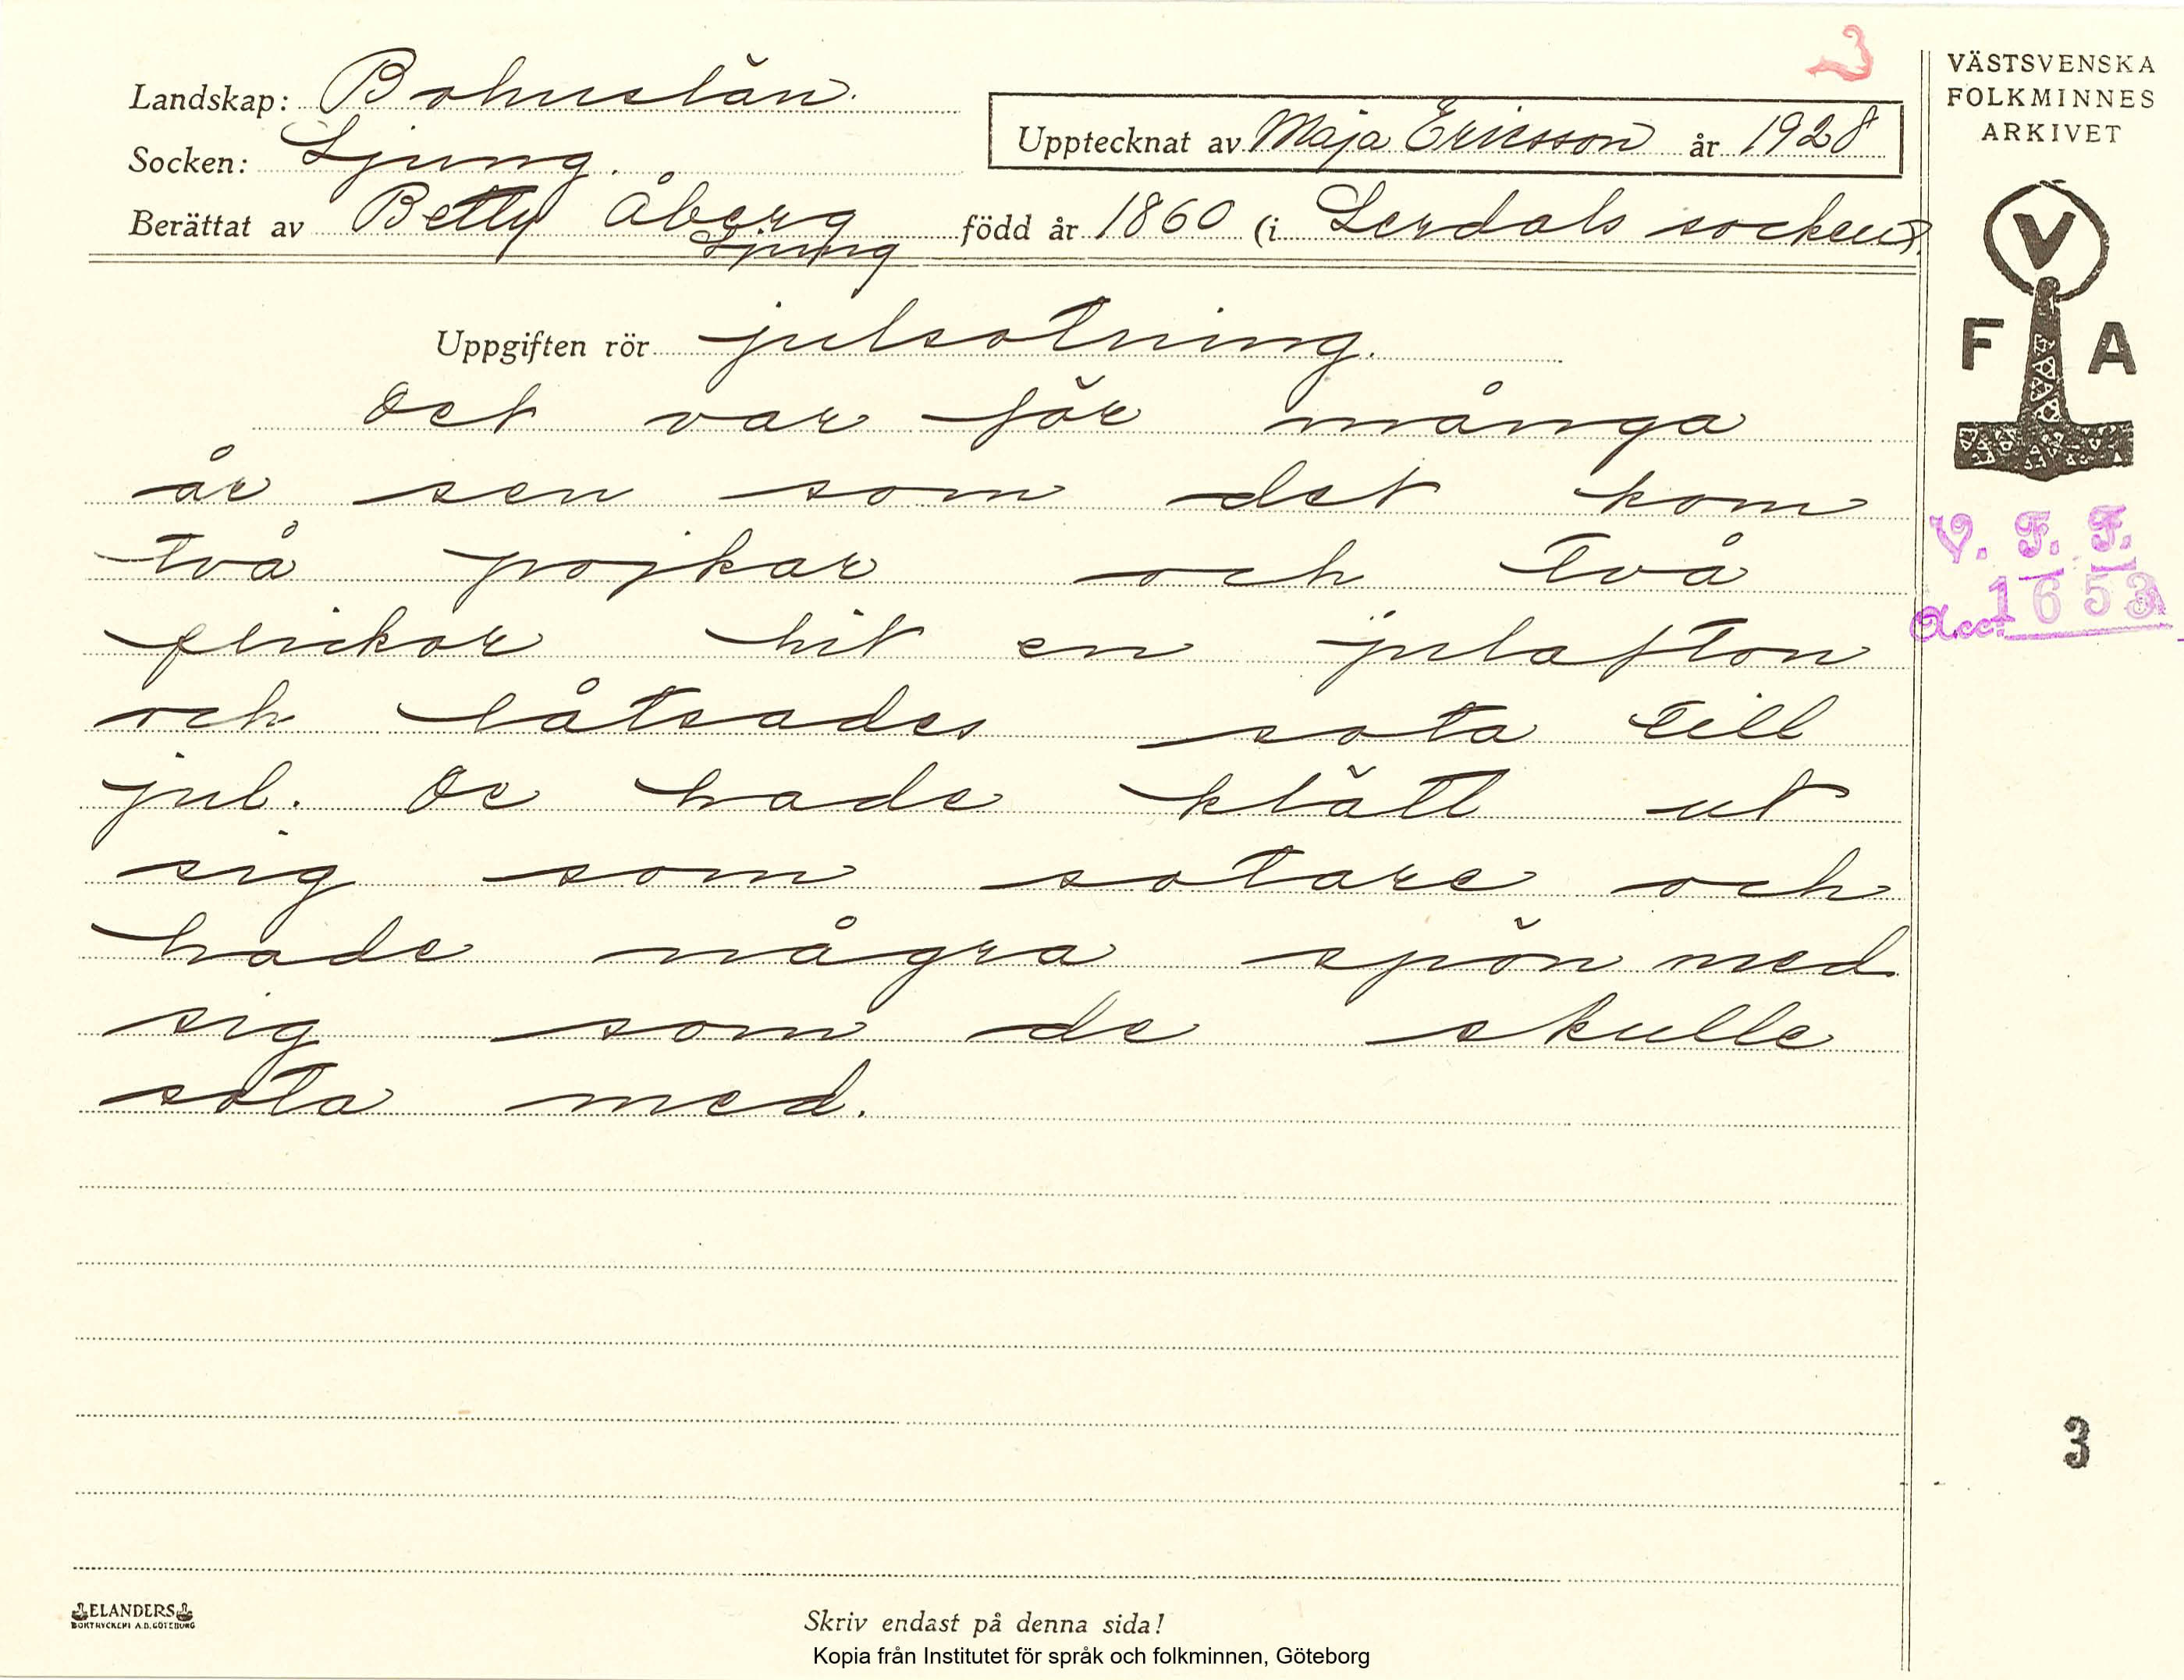 3
VÄSTSVENSKA
FOLKMINNES
ARKIVET
Landskap: Bohuslän.
Upptecknat av Maja Ericsson år 1928
Socken: Ljung.
Berättat av Betty Åberg född år 1860 (i Lerdals socken).
Ljung
V
F A
Uppgiften rör julsotning.
Det var för många
år sen som det kom
två pojkar och två
flickor hit en julafton
och låtsades sota till
jul. De hade klätt ut
sig som sotare och
hade några spön med
sig som de skulle
sota med.
V. F. F.
Acc. 1653
3
ELANDERS
BOKTRYCKERI A.B. GÖTEBORG
Skriv endast på denna sida!
Kopia från Institutet för språk och folkminnen, Göteborg